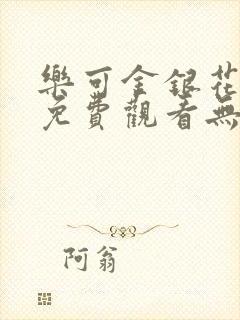 樂可金銀花
免費觀看無
阿翁